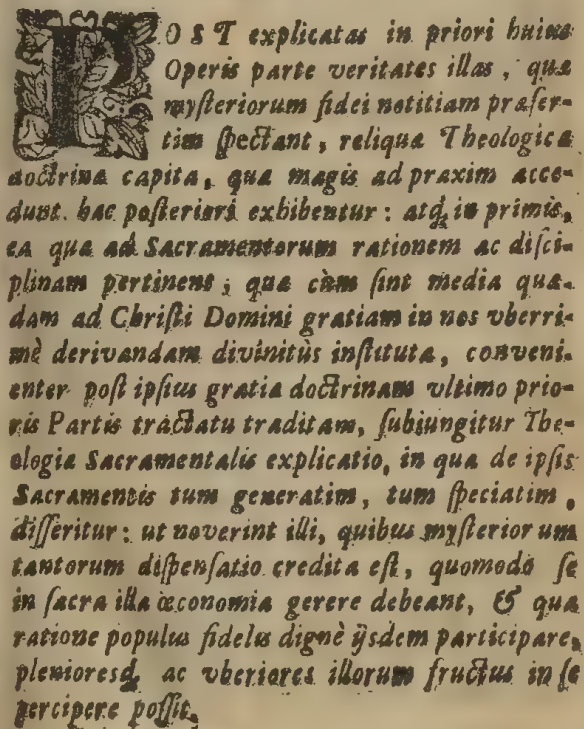 POST explicatas in priori huius
Operis parte veritates illas, quæ
mysteriorum fidei notitiam præser-
tim spectant, reliqua Theologicæ
doctrinæ capita, quæ magis ad praxim acce-
dunt. hac posteriori exhibentur: atq; in primis,
ea quæ ad Sacramentorum rationem ac disci-
plinam pertinent; quæ cùm sint media quæ-
dam ad Christi Domini gratiam in nos vberri-
mè derivandam divinitùs instituta, conveni-
enter post ipsius gratiæ doctrinam vltimo prio-
ris Partis tractatu traditam, subiungitur The-
ologiæ Sacramentalis explicatio, in qua de ipsis
Sacramentis tum generatim, tum speciatim,
disseritur: ut noverint illi, quibus mysteriorum
tantorum dispensatio credita est, quomodo se
in sacra illa œconomia gerere debeant, & qua
ratione populus fidelis dignè ijsdem participare,
plenioresq; ac vberiores illorum fructus in se
percipere possit.